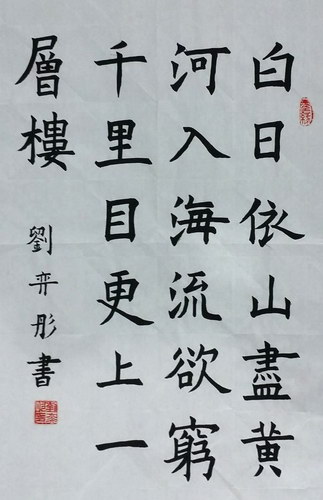 白日依山盡黃
河入海流欲窮
千里目更上一
層樓
劉弈彤書